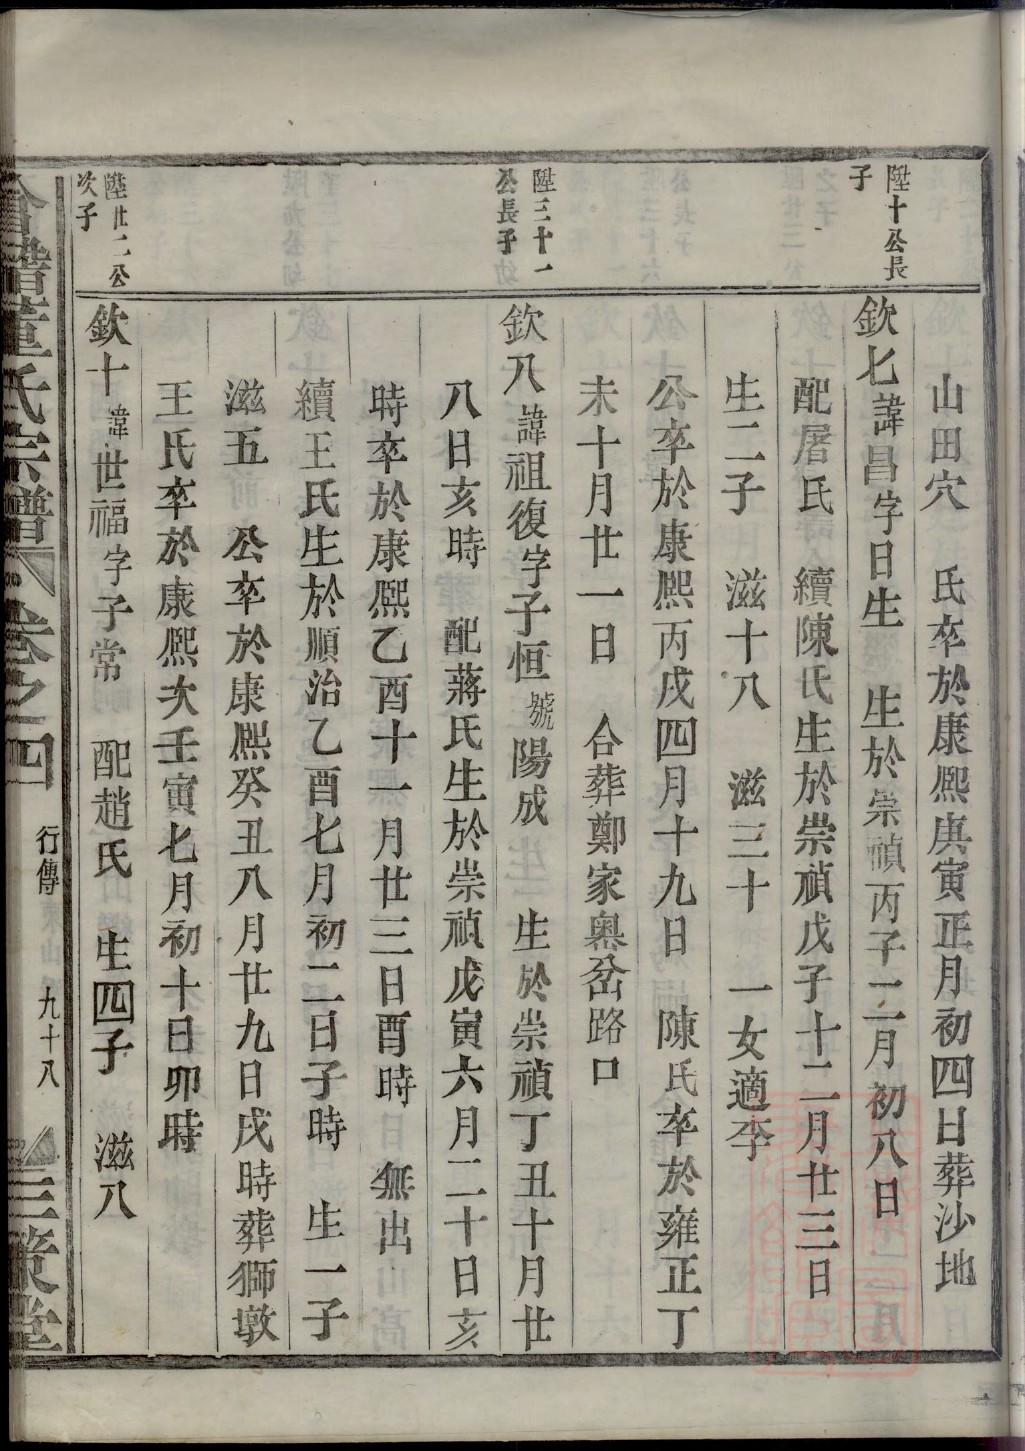 山田穴　氏卒於康熙庚寅正月初四日葬沙地
陞十公長
子
欽七諱昌字日生　生於崇禎丙子二月初八日
配屠氏　續陳氏生於崇禎戊子十二月廿三日
生二子　滋十八　滋三十　一女適李
公卒於康熙丙戌四月十九日　陳氏卒於雍正丁
未十月廿一日　合葬鄭家奧岔路口
陞三十一
公長子
欽八諱祖復字子恒號陽成　生於崇禎丁丑十月廿
八日亥時　配蔣氏生於崇禎戊寅六月二十日亥
時卒於康熙乙酉十一月廿三日酉時　無出
續王氏生於順治乙酉七月初二日子時　生一子
滋五　公卒於康熙癸丑八月廿九日戌時葬獅墩
王氏卒於康熙次壬寅七月初十日卯時
陞廿二公
次子
欽十諱世福字子常　配趙氏　生四子　滋八
董氏宗譜　卷之四　行傳　九十八　三策堂